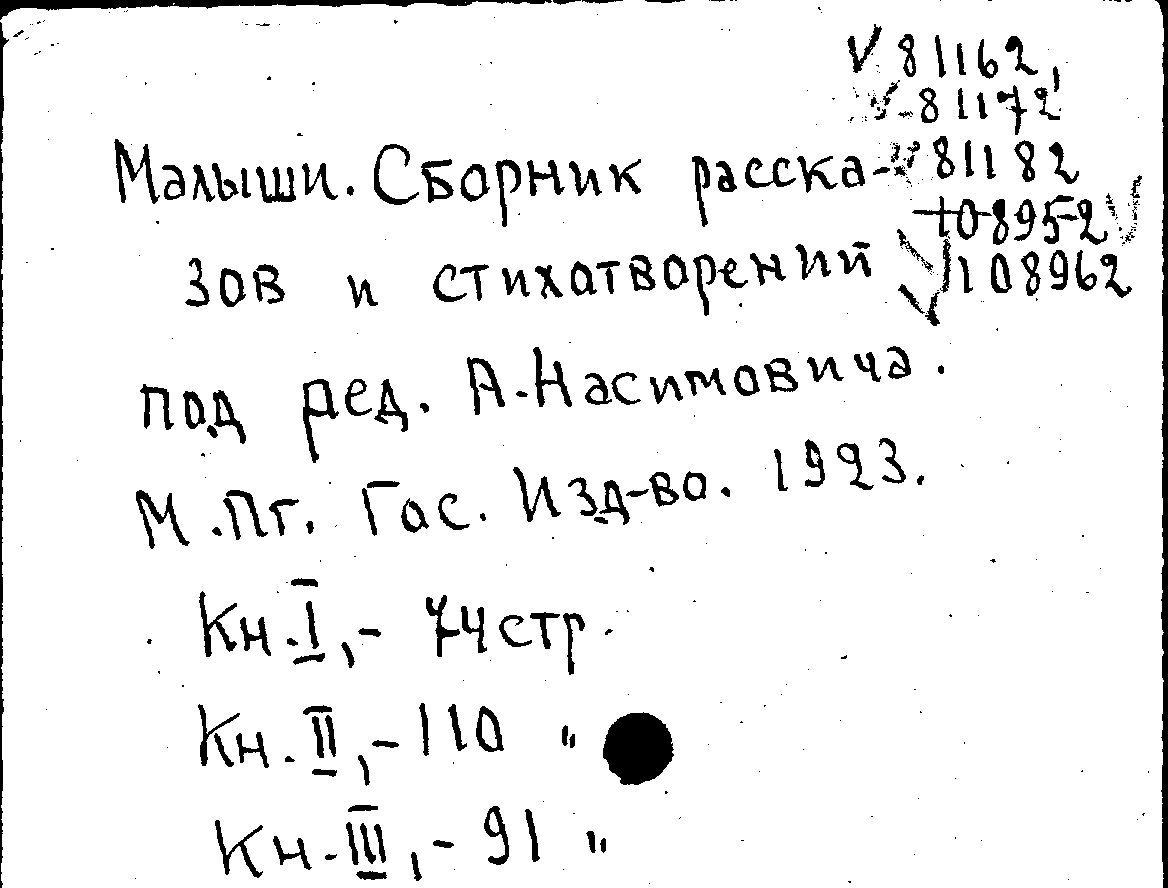 √ 81162,
√ 81172
Малыши. Сборник расска- √ 81182
108952 √
зов и стихотворений √ 108962
под ред. А. Насимовича.
М. Пг. Гос. Изд-во. 1923.
Кн. I, - 74 стр.
Кн. II, - 110 "
Кн. III, - 91 "